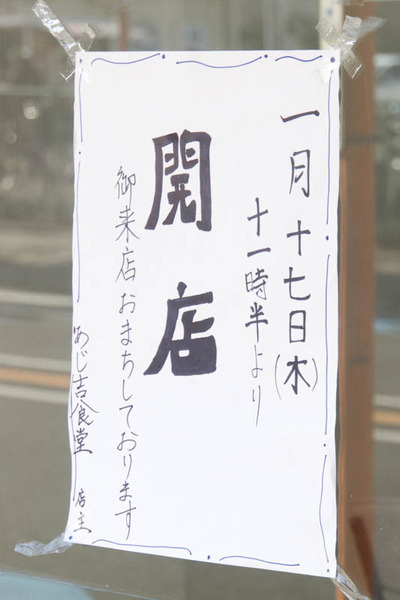 一月十七日(木)
十一時半より
開店
御来店おまちしております
あじ吉食堂 店主